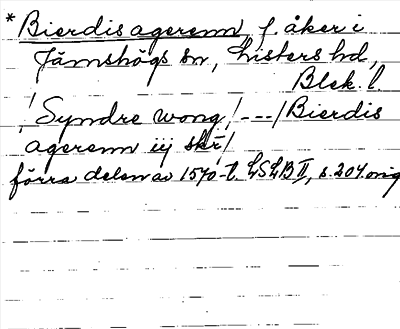 * Bierdis agerenn, f. åker i
Jämshögs sn, Listers hd,
Blek. l.
/ Syndre wong / --- / Bierdis
agerenn iij skr̄ /
förra delen av 1570-t. LSLB II, s. 204 orig